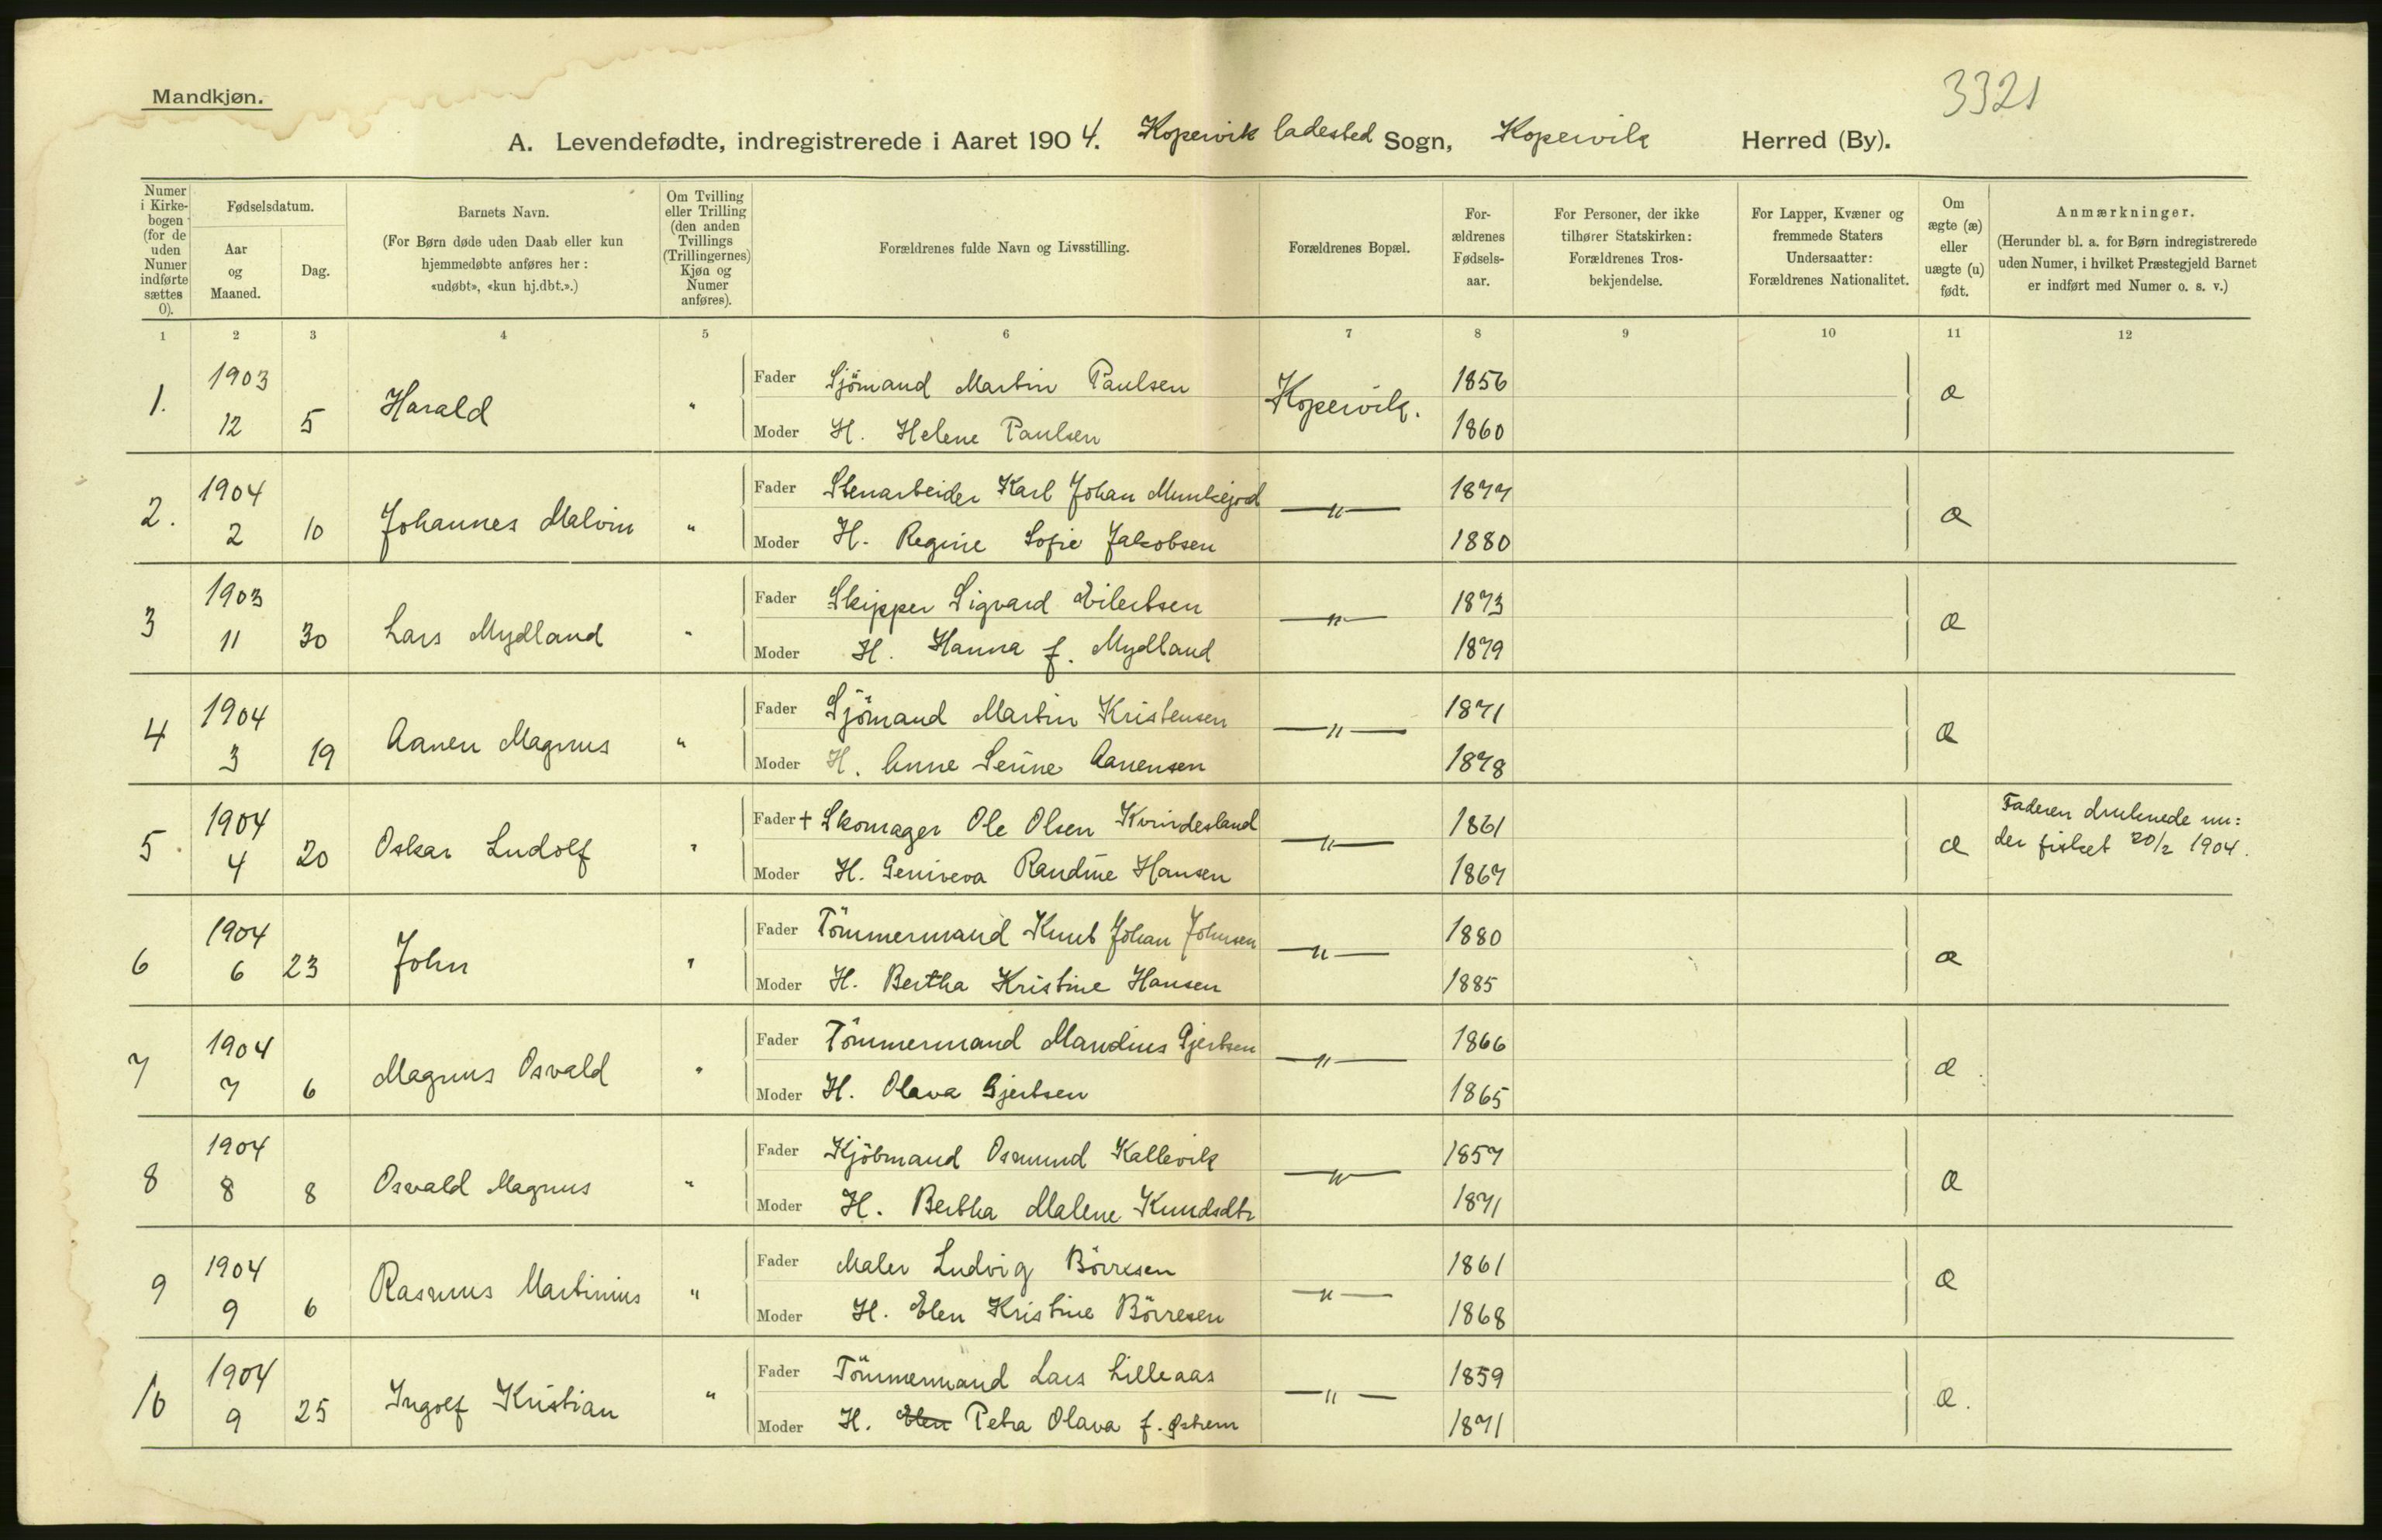 3321
Mandkjøn.
A. Levendefødte, indregistrerede i Aaret 1904. Kopervik ladested Sogn, Kopervik Herred (By).
Numer i Kirke-bogen (for de uden Numer indførte sættes 0).
Fødselsdatum.
Aar og Maaned.
Dag.
Barnets Navn.
(For Børn døde uden Daab eller kun hjemmedøbte anføres her: «udøbt», «kun hj.dbt.».)
Om Tvilling eller Trilling (den anden Tvillings (Trillingernes) Kjøn og Numer anføres).
Forældrenes fulde Navn og Livsstilling.
Forældrenes Bopæl.
For-ældrenes Fødsels-aar.
For Personer, der ikke tilhører Statskirken: Forældrenes Tros-bekjendelse.
For Lapper, Kvæner og fremmede Staters Undersaatter: Forældrenes Nationalitet.
Om ægte (æ) eller uægte (u) født.
Anmærkninger.
(Herunder bl. a. for Børn indregistrerede uden Numer, i hvilket Præstegjeld Barnet er indført med Numer o. s. v.)
1 2 3 4 5 6 7 8 9 10 11 12
1. 1903 12 5 Harald " Fader Sjömand Martin Paulsen Kopervik. 1856 æ
Moder H. Helene Paulsen 1860
2. 1904 2 10 Johannes Malvin " Fader Stenarbeider Karl Johan Munkejord —"— 1877 æ
Moder H. Regine Sofie Jakobsen 1880
3 1903 11 30 Lars Mydland " Fader Skipper Sigvard Eilertsen —"— 1873 æ
Moder H. Hanna f. Mydland 1879
4 1904 3 19 Aanen Magnus " Fader Sjömand Martin Kristensen —"— 1871 æ
Moder H. Anne Serine Aanensen 1878
5 1904 4 20 Oskar Ludolf " Fader + Skomager Ole Olsen Kvindesland —"— 1861 æ Faderen druknede un:
Moder H. Geniveva Randine Hansen 1867 der fisket 20/2 1904.
6 1904 6 23 John " Fader Tömmermand Knut Johan Johnsen —"— 1880 æ
Moder H. Bertha Kristine Hansen 1885
7 1904 7 6 Magnus Osvald " Fader Tömmermand Mandius Gjertsen —"— 1866 æ
Moder H. Olava Gjertsen 1865
8 1904 8 8 Osvald Magnus " Fader Kjöbmand Osmund Kallevik —"— 1857 æ
Moder H. Bertha Malene Knudsdtr 1871
9 1904 9 6 Rasmus Martinius " Fader Maler Ludvig Börresen —"— 1861 æ
Moder H. Elen Kristine Börresen 1868
10 1904 9 25 Ingolf Kristian " Fader Tömmermand Lars Lilleaas —"— 1859 æ.
Moder H. Elen Petra Olava f. Østrem 1871